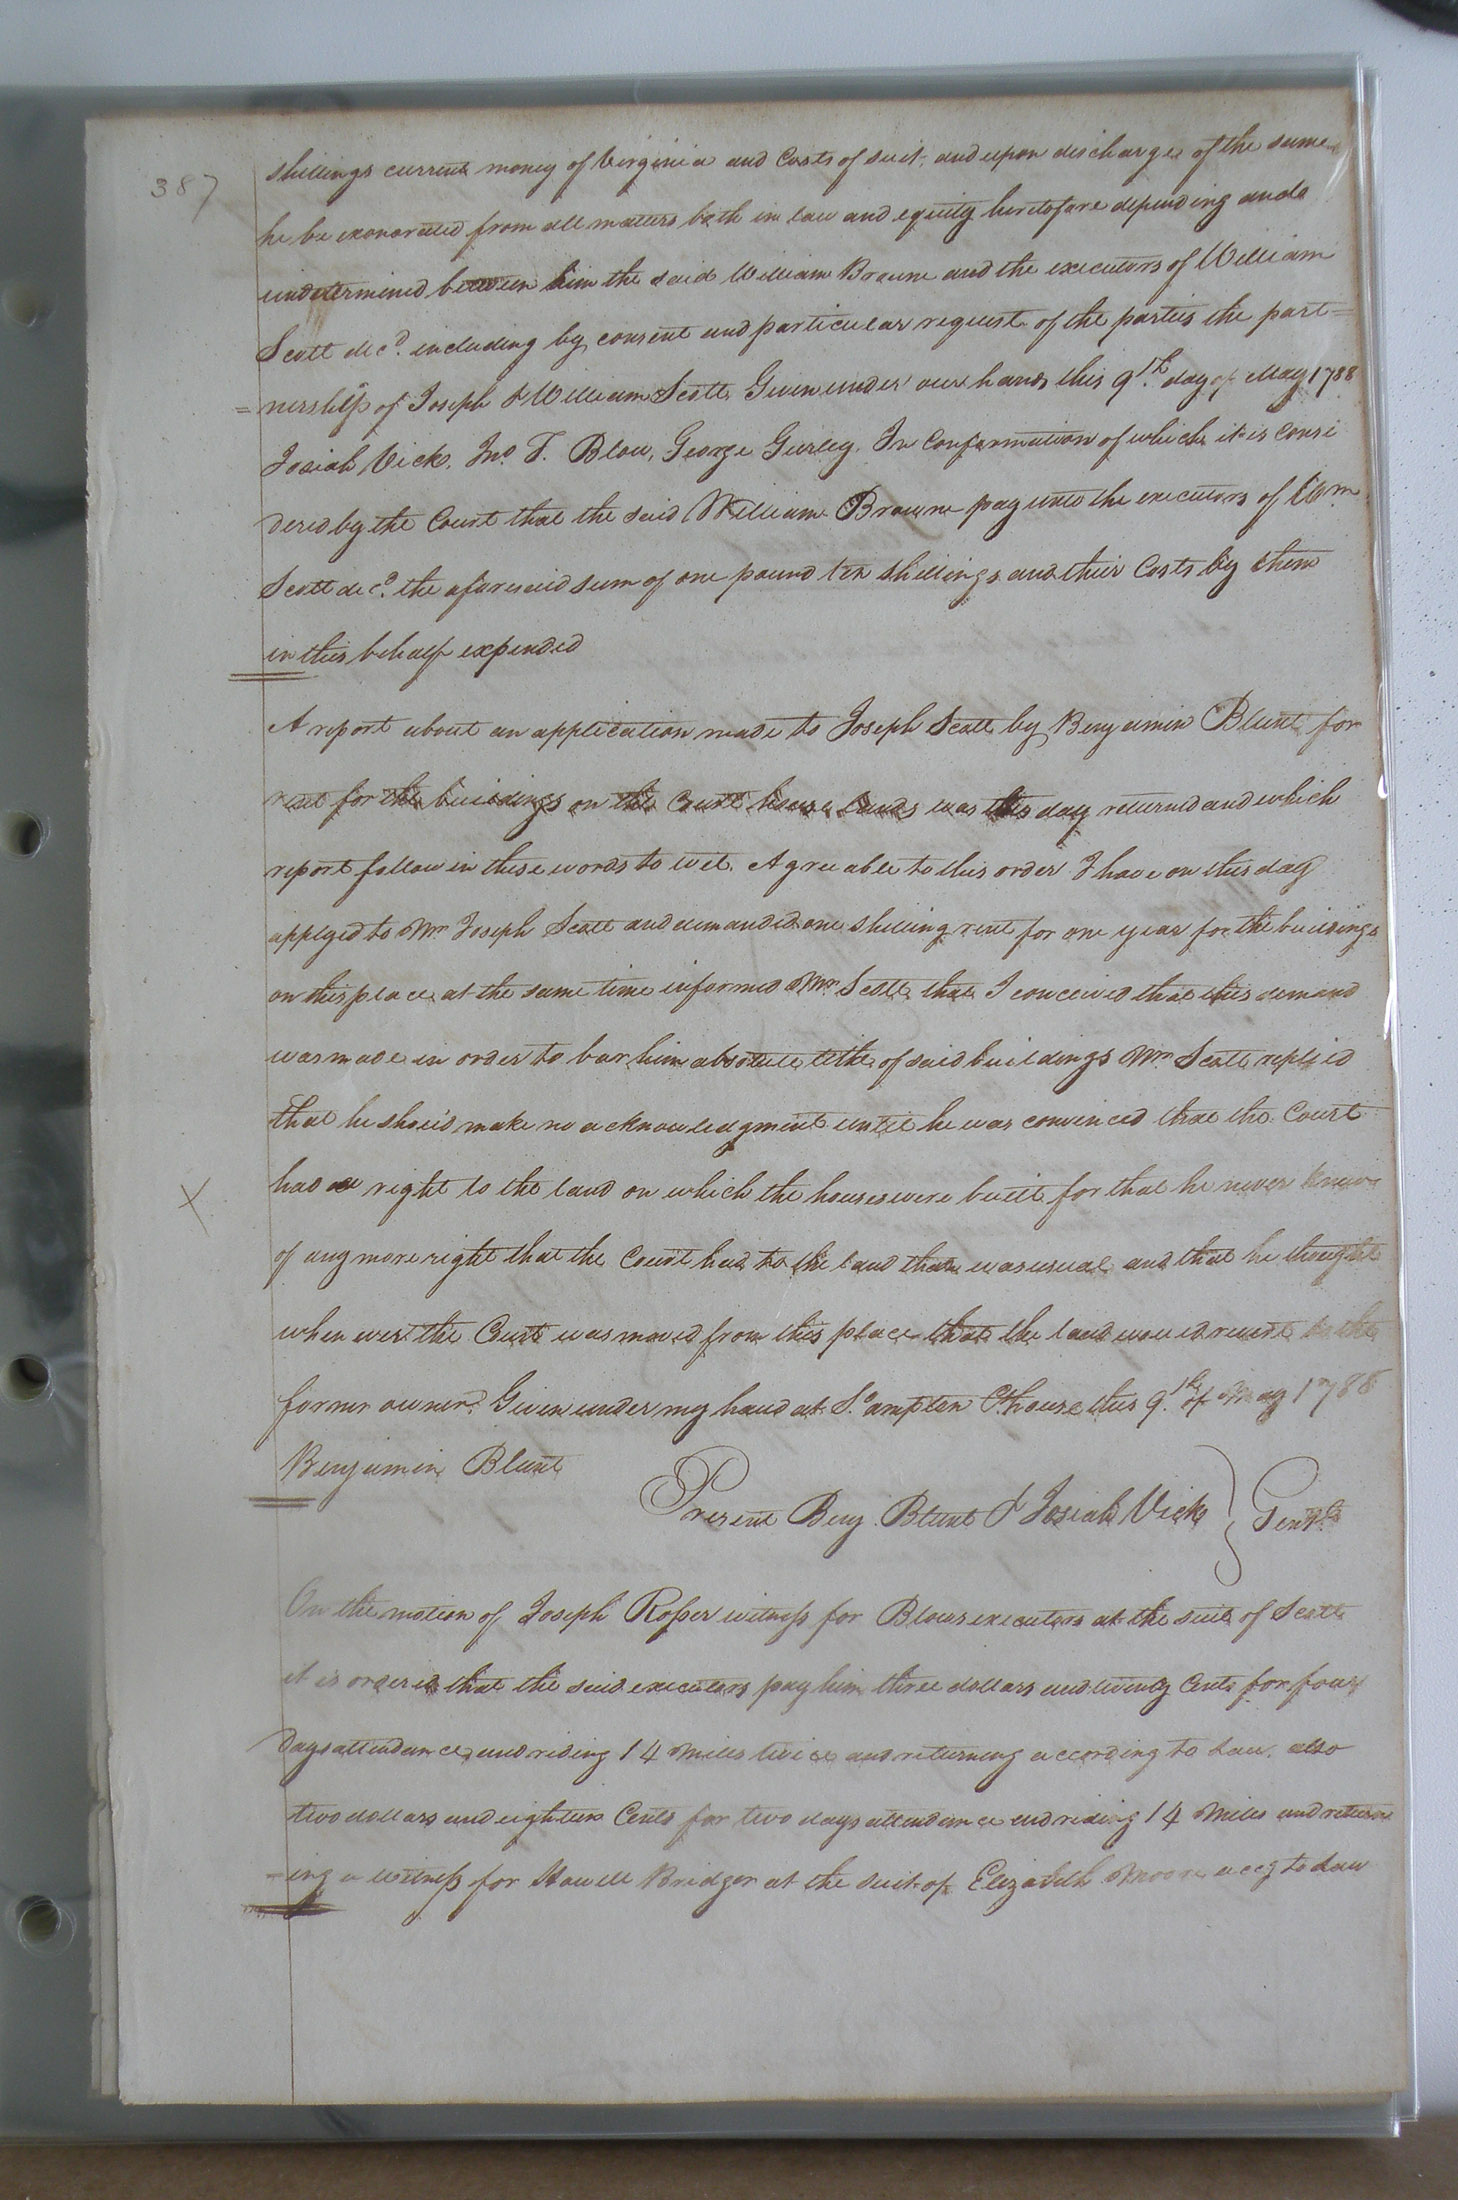 387
shillings current money of Virginia and Costs of suit, and upon discharge of the same
he be exonerated from all matters both in law and equity heretofore depending and
undetermined between him the said William Browne and the executors of William
Scott decd. including by consent and particular request of the parties the part=
=nership of Joseph & William Scott Given under our hands this 9th. day of May 1788
Josiah Vick, Jno. T. Blow, George Gurley. In Conformation of which it is consi
dered by the Court that the said William Browne pay unto the executors of Wm
Scott decd. the aforesaid sum of one pound ten shillings and their Costs by them
in this behalf expended
A report about an application made to Joseph Scott by Benjamin Blunt for
rent for the buildings on the Court house lands was this day returned and which
report follow in these words to wit. Agreeable to this order I have on this day
applyed to Mr Joseph Scott and demanded one shilling rent for one year for the buildings
on this place at the same time informed Mr Scott that I conceived that this demand
was made in order to bar him absolute title of said buildings Mr Scott replied
that he shou'd make no acknowledgment until he was convinced that the Court
had a right to the land on which the houses were built for that he never knew
X
of any more right that the Court had to the land than was usual and that he thought
when ever the Court was moved from this place that the land would revert to the
former owner. Given under my hand at So.ampton C.house this 9.th of May 1788
Benjamin Blunt
Present Benj. Blunt & Josiah Vick } Gentn.
On the motion of Joseph Rosser witness for Blows executors at the suit of Scott
it is ordered that the said executors pay him three dollars and twenty Cents for four
Days attendance and riding 14 Miles twice and returning according to Law. also
two dollars and eighteen Cents for two days attendance and riding 14 Miles and return
=ing a witness for Howell Bridger at the suit of Elizabeth Moore accg to Law